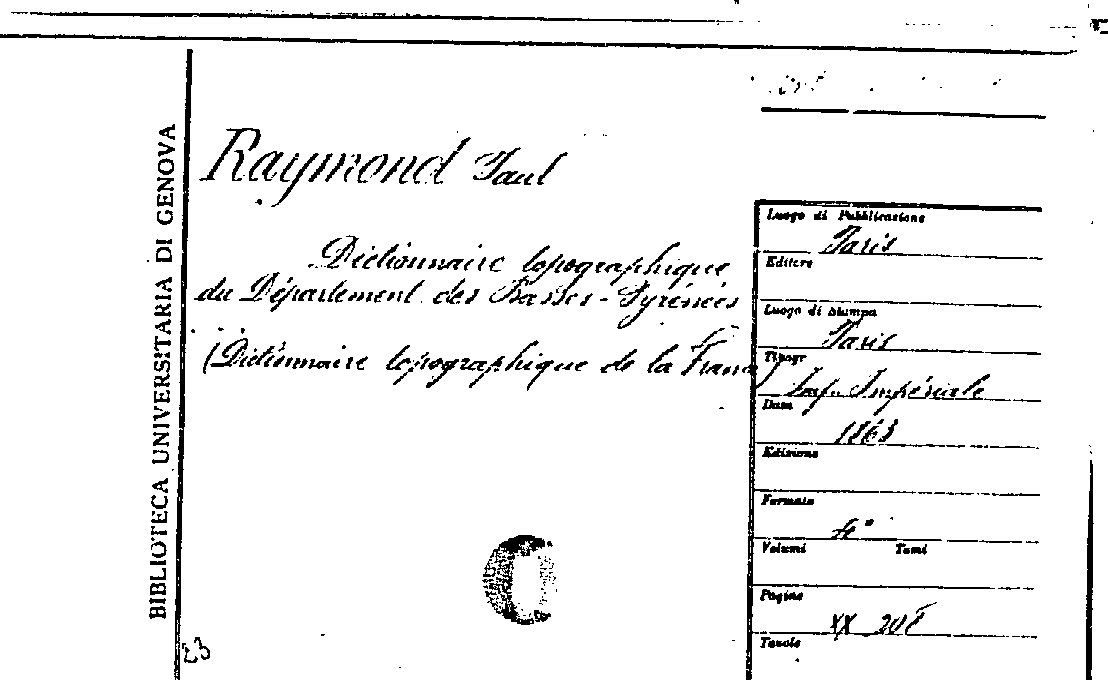 BIBLIOTECA UNIVERSITARIA DI GENOVA
Raymond Paul
Dictionnaire topographique
du Département des Basses-Pyrénées
(Dictionnaire topographique de la France)
Luogo di Pubblicazione
Paris
Editore
Luogo di Stampa
Paris
Tipogr
Imp. Impériale
Data
1863
Edizione
Formato
4°
Volumi Tomi
Pagine
XX 208
Tavole
23